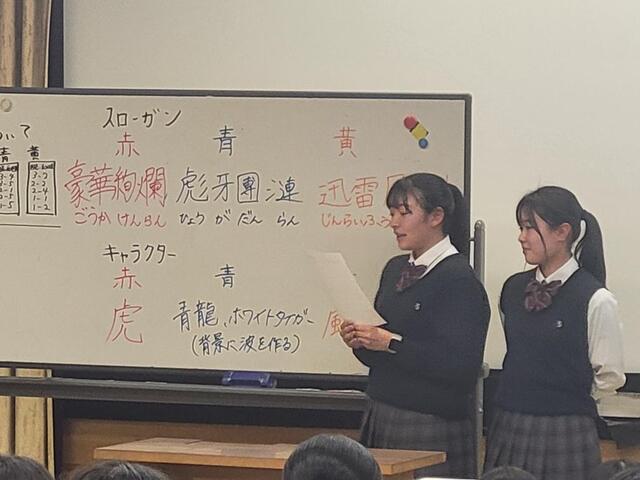 いて
青 黄
スローガン
赤 青 黄
豪華絢爛 彪牙團漣 迅雷風
ごうかけんらん ひょうがだんらん じんらいふう
キャラクター
赤 青
虎 青龍、ホワイトタイガー 風
(背景に波を作る)